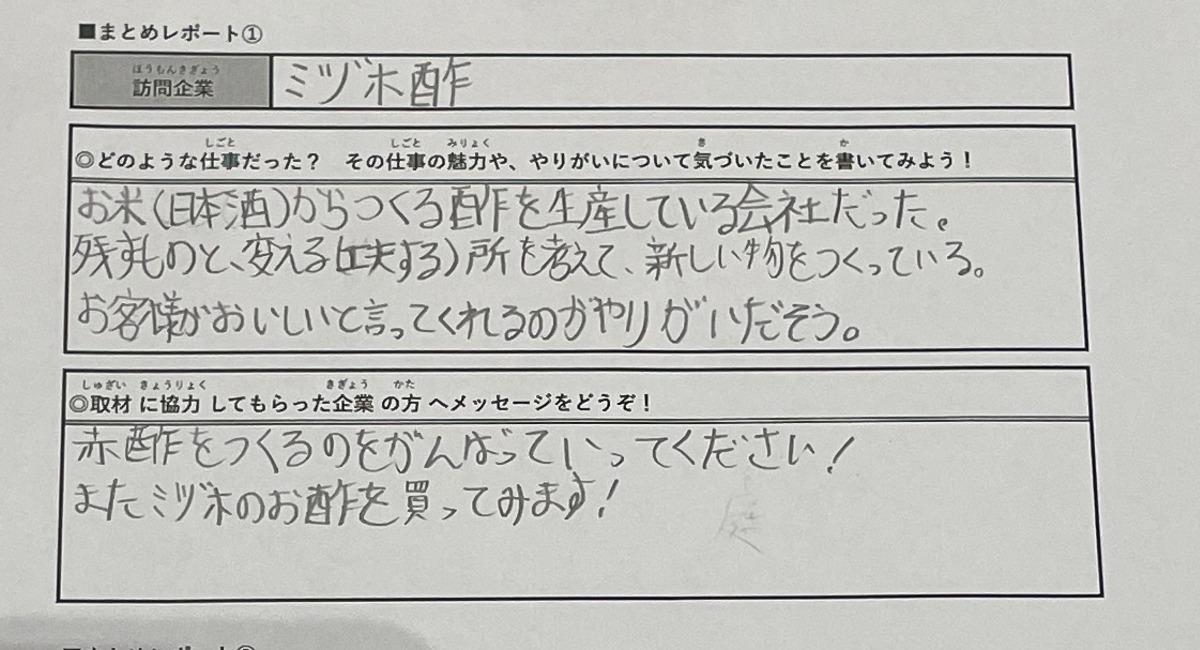 ■まとめレポート①
ほうもんきぎょう
訪問企業
ミヅホ酢
しごと しごと みりょく き か
◎どのような仕事だった? その仕事の魅力や、やりがいについて気づいたことを書いてみよう!
お米(日本酒)からつくる酢を生産している会社だった。
残すものと、変える(工夫する)所を考えて、新しい物をつくっている。
お客様がおいしいと言ってくれるのがやりがいだそう。
しゅざい きょうりょく きぎょう かた
◎取材に協力してもらった企業の方へメッセージをどうぞ!
赤酢をつくるのをがんばっていってください!
またミヅホのお酢を買ってみます!